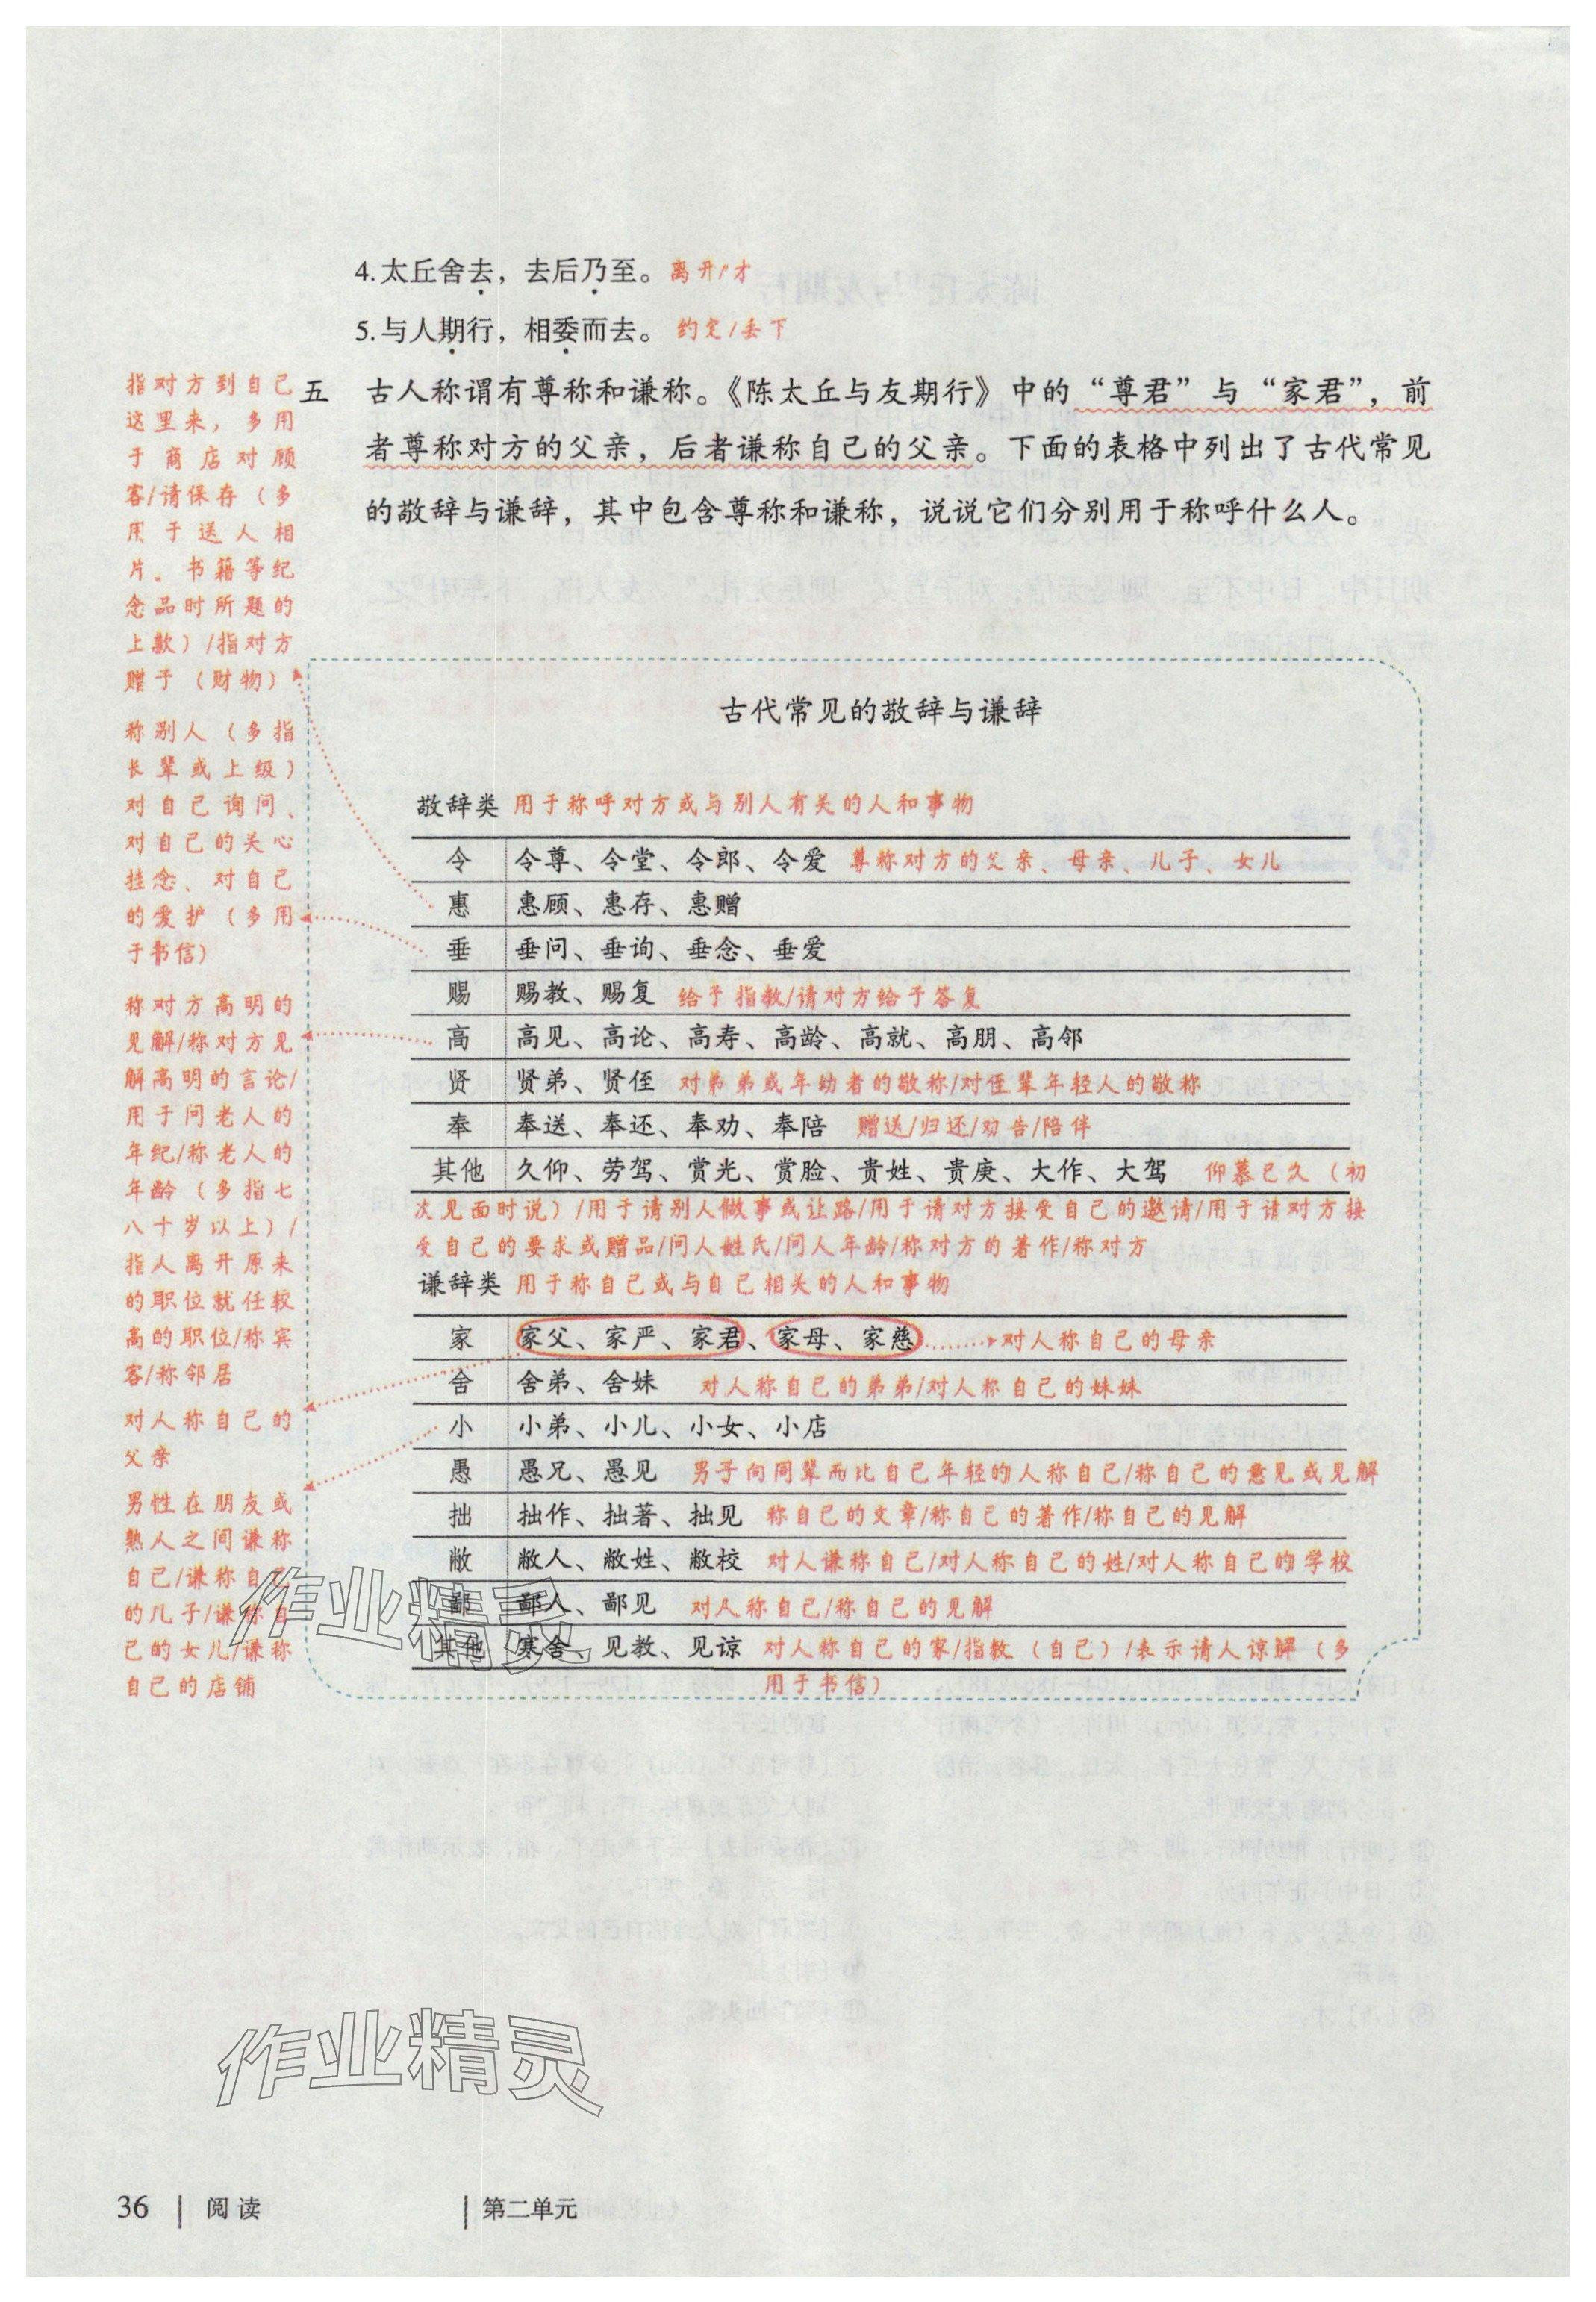 4.太丘舍去，去后乃至。离开/才
5.与人期行，相委而去。约定/丢下
五 古人称谓有尊称和谦称。《陈太丘与友期行》中的“尊君”与“家君”，前
者尊称对方的父亲，后者谦称自己的父亲。下面的表格中列出了古代常见
的敬辞与谦辞，其中包含尊称和谦称，说说它们分别用于称呼什么人。
指对方到自己
这里来，多用
于商店对顾
客/请保存（多
用于送人相
片、书籍等纪
念品时所题的
上款）/指对方
赠予（财物）
称别人（多指
长辈或上级）
对自己询问、
对自己的关心
挂念、对自己
的爱护（多用
于书信）
称对方高明的
见解/称对方见
解高明的言论/
用于问老人的
年纪/称老人的
年龄（多指七
八十岁以上）/
指人离开原来
的职位就任较
高的职位/称宾
客/称邻居
对人称自己的
父亲
男性在朋友或
熟人之间谦称
自己/谦称自己
的儿子/谦称自
己的女儿/谦称
自己的店铺
古代常见的敬辞与谦辞
敬辞类 用于称呼对方或与别人有关的人和事物
令 令尊、令堂、令郎、令爱 尊称对方的父亲、母亲、儿子、女儿
惠 惠顾、惠存、惠赠
垂 垂问、垂询、垂念、垂爱
赐 赐教、赐复 给予指教/请对方给予答复
高 高见、高论、高寿、高龄、高就、高朋、高邻
贤 贤弟、贤侄 对弟弟或年幼者的敬称/对侄辈年轻人的敬称
奉 奉送、奉还、奉劝、奉陪 赠送/归还/劝告/陪伴
其他 久仰、劳驾、赏光、赏脸、贵姓、贵庚、大作、大驾 仰慕已久（初
次见面时说）/用于请别人做事或让路/用于请对方接受自己的邀请/用于请对方接
受自己的要求或赠品/问人姓氏/问人年龄/称对方的著作/称对方
谦辞类 用于称自己或与自己相关的人和事物
家 家父、家严、家君、家母、家慈 对人称自己的母亲
舍 舍弟、舍妹 对人称自己的弟弟/对人称自己的妹妹
小 小弟、小儿、小女、小店
愚 愚兄、愚见 男子向同辈而比自己年轻的人称自己/称自己的意见或见解
拙 拙作、拙著、拙见 称自己的文章/称自己的著作/称自己的见解
敝 敝人、敝姓、敝校 对人谦称自己/对人称自己的姓/对人称自己的学校
鄙 鄙人、鄙见 对人称自己/称自己的见解
其他 寒舍、见教、见谅 对人称自己的家/指教（自己）/表示请人谅解（多
用于书信）
作业精灵
作业精灵
36 阅读 第二单元